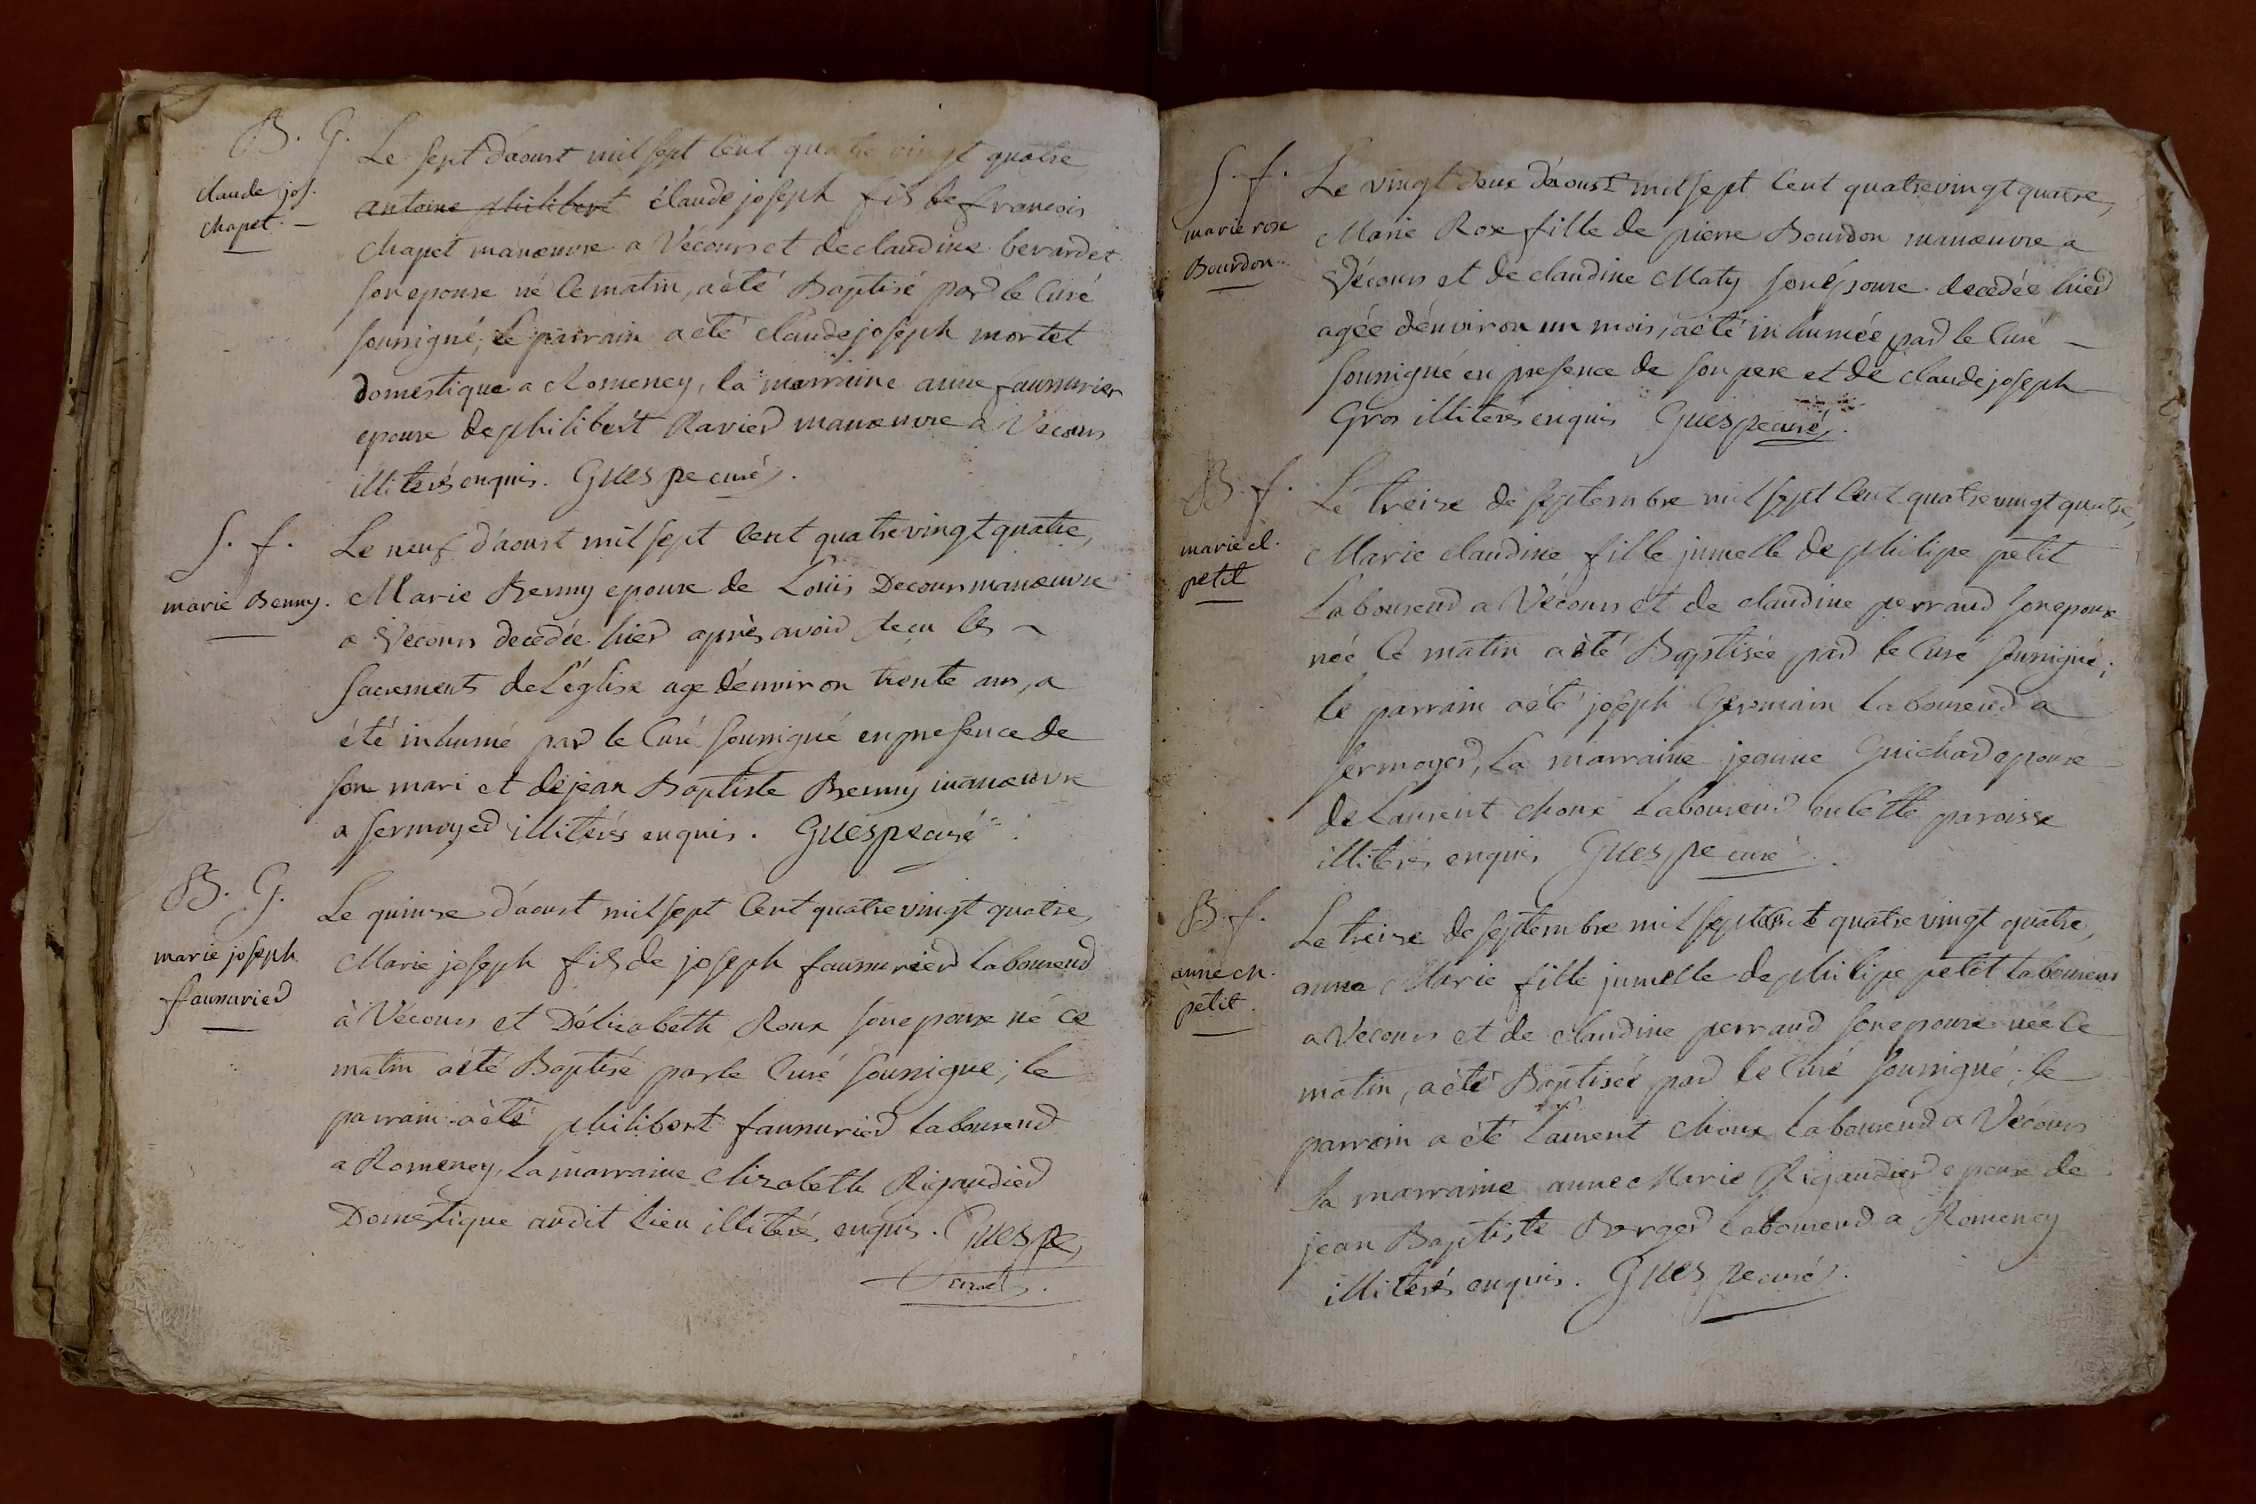 B. G.
claude jos.
chapet. —
Le sept d'aoust mil sept cent quatre vingt quatre
antoine philibert claude joseph fils de francois
chapet manœuvre a Vécours et de claudine berardet
son epouse né ce matin, a été Baptisé par le Curé
soussigné; le parrain a été claude joseph mortet
domestique a Romeney, la marraine anne faussurier
epouse de philibert Ravier manœuvre a Vécours
illiterés enquis. Guespe curé.
S. f.
marie Benny.
Le neuf d'aoust mil sept cent quatre vingt quatre,
Marie Benny epouse de Louis Decours manœuvre
a Vécours decedée hier après avoir recu les ~
sacrements de L'église age d'environ trente ans, a
été inhumé par le Curé soussigné en presence de
son mari et de jean Baptiste Benny manœuvre
a sermoyer illiterés enquis. Guespe curé
B. G.
marie joseph
faussurier
Le quinse d'aoust mil sept cent quatre vingt quatre,
Marie joseph fils de joseph faussurier laboureur
à Vécours et D'élizabeth Roux son epouse né ce
matin a été Baptisé par le Curé soussigné; le
parrain a été philibert faussurier laboureur
a Romeney, la marraine elizabeth Rigaudier
Domestique audit lieu illiterés enquis. Guespe,
curé.
S. f.
marie rose
Bourdon.
Le vingt deux d'aoust mil sept cent quatre vingt quatre,
Marie Rose fille de pierre Bourdon manœuvre a
Vécours et de claudine Maty son Epouse decedée hier
agée d'environ un mois, a été inhumée par le Curé —
soussigné en presence de son pere et de claude joseph
Gros illiterés enquis Guespe curé.
B. f.
marie cl.
petit
Le treize de septembre mil sept cent quatre vingt quatre,
Marie claudine fille jumelle de philipe petit
Laboureur a Vécours et de claudine perraud son epouse
née ce matin a été Baptisée par le Curé soussigné;
le parrain a été joseph Germain laboureur a
sermoyer, La marraine jeanne Guichard epouse
de Laurent choux laboureur en cette paroisse
illiterés enquis Guespe curé.
B. f.
anne m.
petit.
Le treize de septembre mil sept cent quatre vingt quatre,
anne Marie fille jumelle de philipe petit laboureur
a Vécours et de claudine perraud son epouse née ce
matin, a été Baptisée par le Curé soussigné; le
parrain a été Laurent choux laboureur a Vécours
la marraine anne Marie Rigaudier epouse de
jean Baptiste Berger laboureur a Romeney
illiterés enquis. Guespe curé.